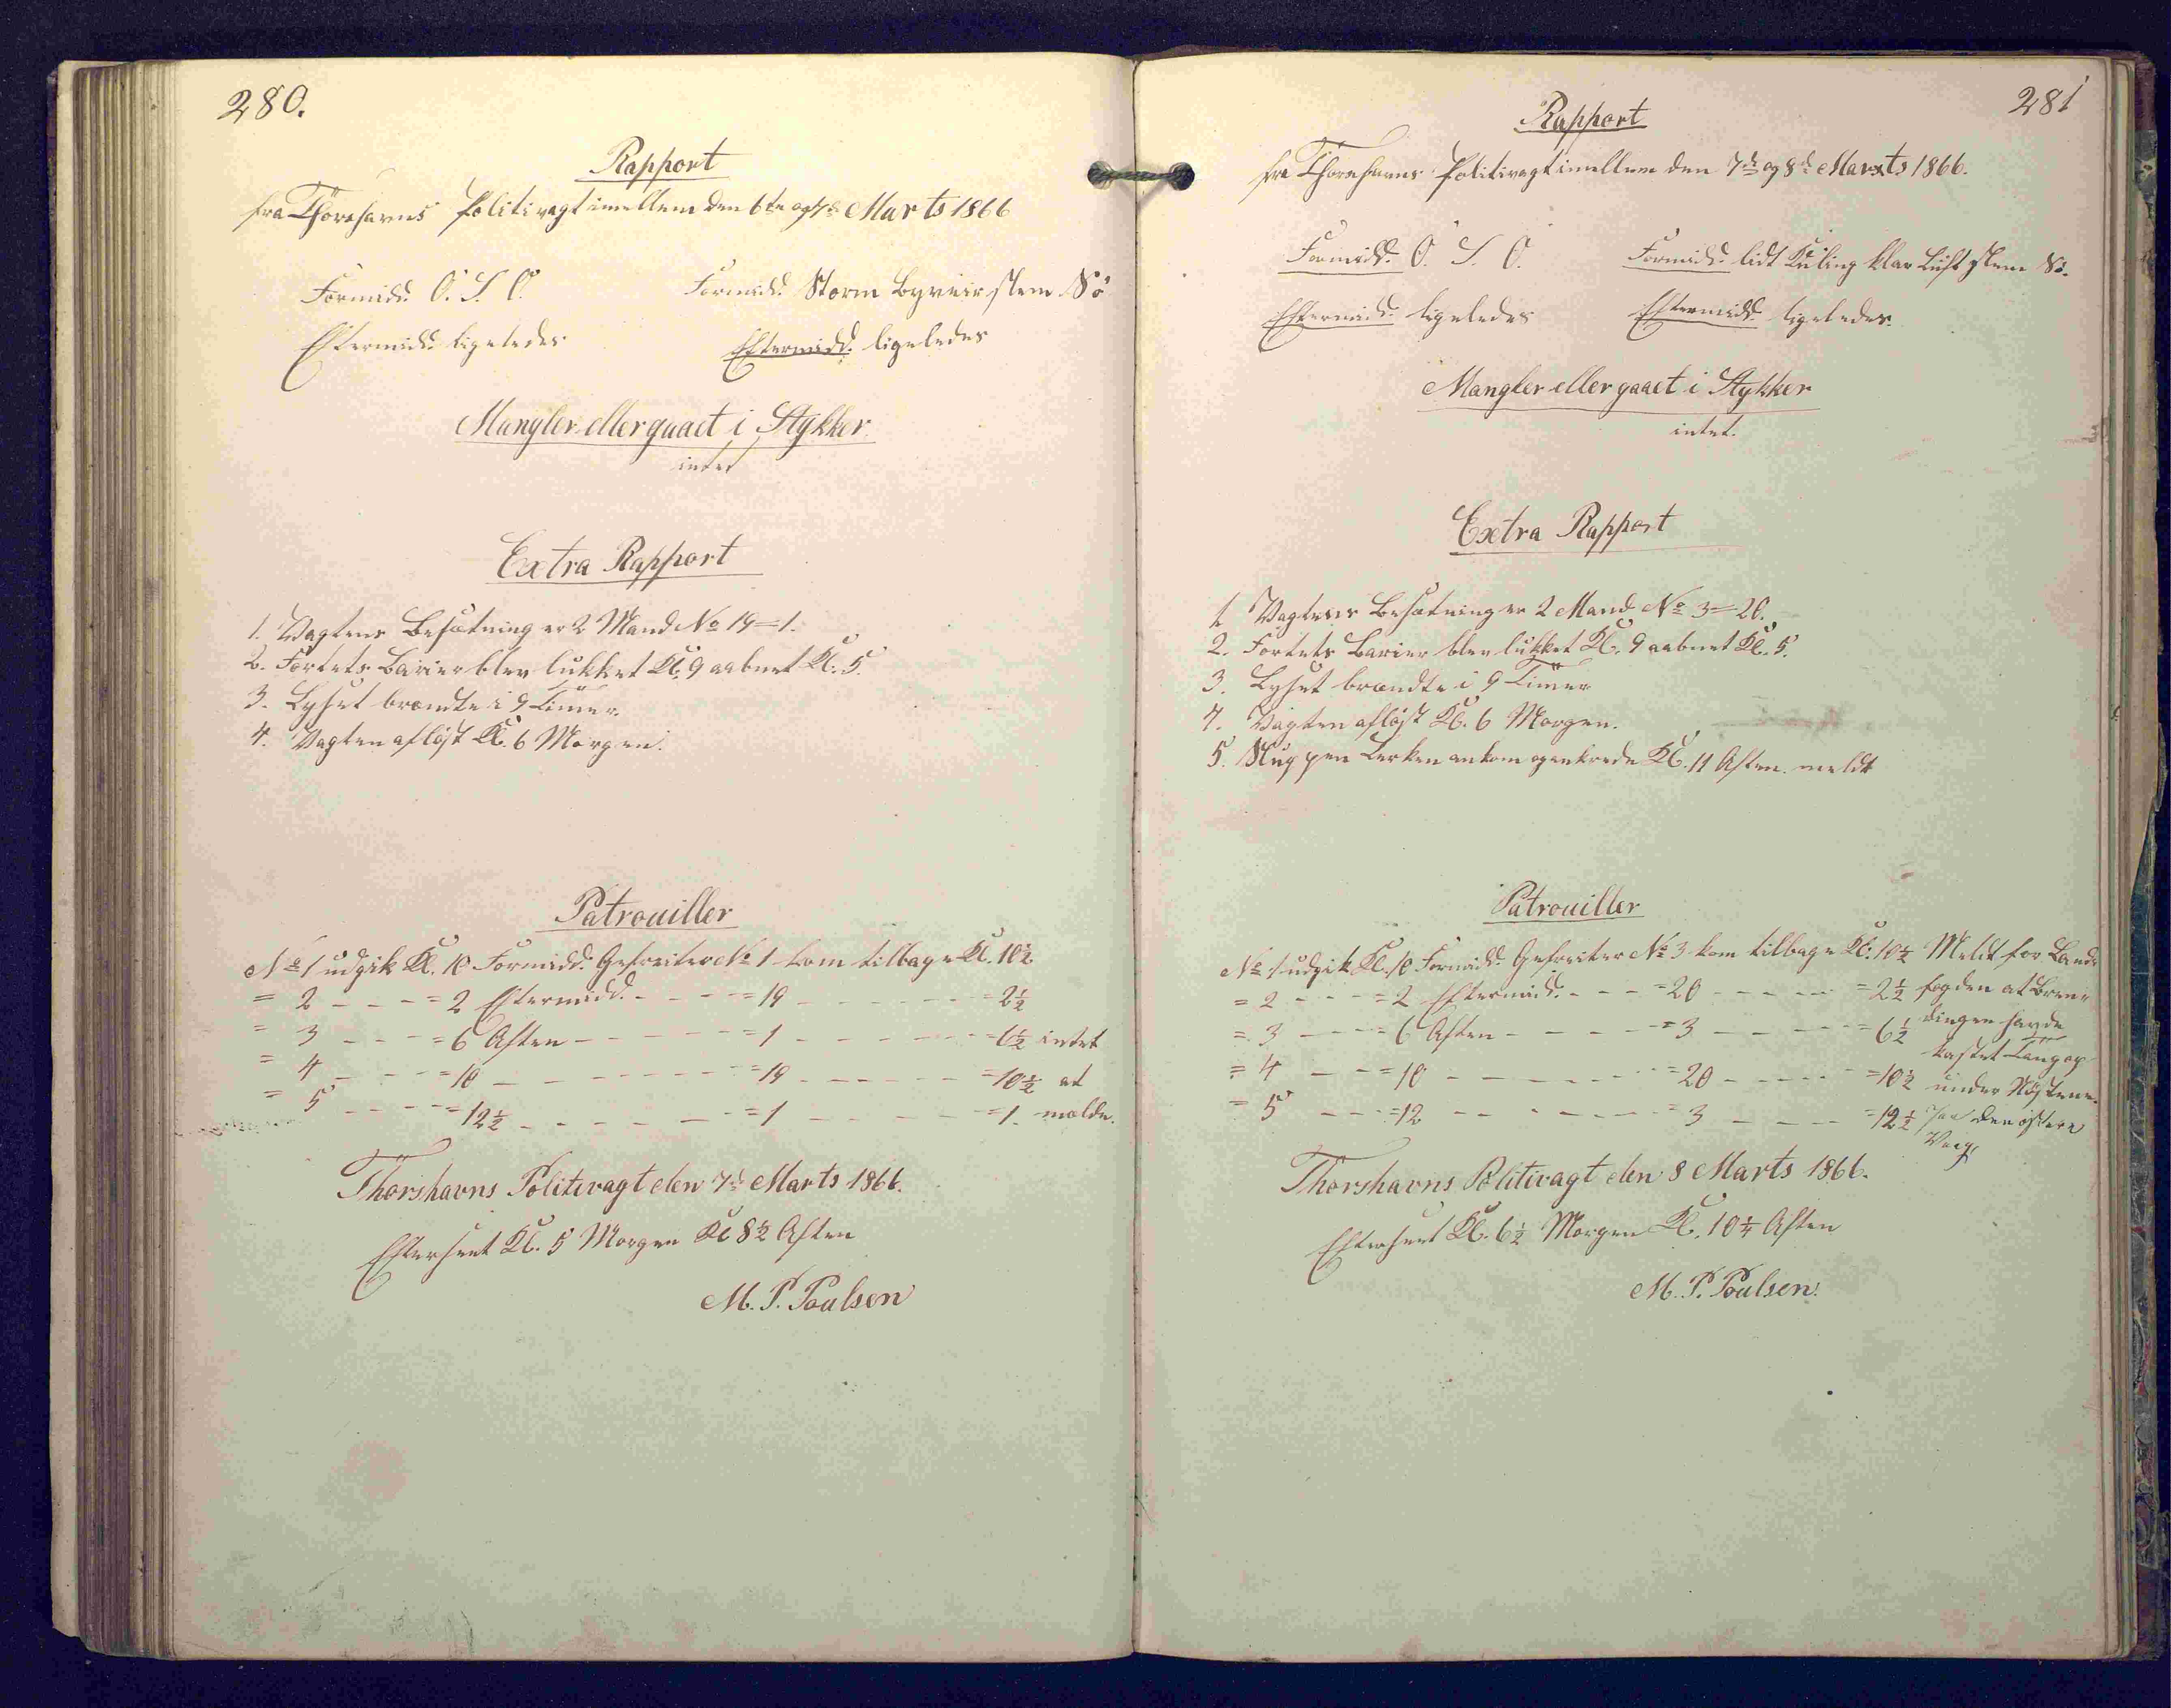 280.
Rapport
fra Thorshavns Politivagt imellem den 6te og 7de Marts 1866
Formidd. O. S. O. Formidd. Storm Byveir slem Sö
Eftermidd. ligeledes Eftermidd. ligeledes
Mangler eller gaaet i Stykker
intet
Extra Rapport
1. Vagtens Besætning er 2 Mand No 19=1.
2. Fortets Barier blev lukket Kl. 9 aabnet Kl. 5.
3. Lyset brændte i 9 Timer
4. Vagten afløst Kl. 6 Morgen.
Patrouiller
No 1 udgik Kl. 10 Formidd. Gefreiter No 1 kom tilbage Kl. 10½
= 2 - - - = 2 Eftermidd. - - - = 19 - - - - - = 2½
= 3 - - - = 6 Aften - - - - - = 1 - - - - - = 6½ intet
= 4 - - - = 10 - - - - - - - = 19 - - - - - = 10½ at
= 5 - - - = 12½ - - - - - - = 1 - - - - - = 1. melde.
Thorshavns Politivagt den 7de Marts 1866.
Efterseet Kl. 5 Morgen Kl 8½ Aften
M. P. Poulsen
281
Rapport
fra Thorshavns Politivagt imellem den 7de og 8de Marts 1866.
Formidd. O. S. O. Formidd. lidt Kuling klar Luft slem Sö.
Eftermidd. ligeledes Eftermidd. ligeledes.
Mangler eller gaaet i Stykker
intet.
Extra Rapport
1 Vagtens Besætning er 2 Mand No 3=20.
2. Fortets Barier blev lukket Kl. 9 aabnet Kl. 5.
3. Lyset brændte i 9 Timer
4. Vagten afløst Kl. 6 Morgen.
5. Sluppen Lerken ankom og ankrede Kl. 11 Aften. meldt
Patrouiller
No 1 udgik Kl. 10 Formidd. Gefreiter No 3 kom tilbage Kl. 10½ Meldt for Land
= 2 - - - = 2 Eftermidd. - - - = 20 - - - - = 2½ fogden at Bren
= 3 - - - = 6 Aften - - - - - = 3 - - - - = 6½ dingen havde
= 4 - - - = 10 - - - - - - - = 20 - - - - = 10½ kastet Tang op under Nøstene
= 5 - - - = 12 - - - - - - - = 3 - - - - = 12½ paa den østere
Vaag
Thorshavns Politivagt den 8 Marts 1866.
Efterseet Kl. 6½ Morgen Kl. 10¼ Aften
M. P. Poulsen.